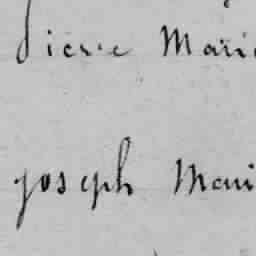 Pierre Marie
joseph Mari